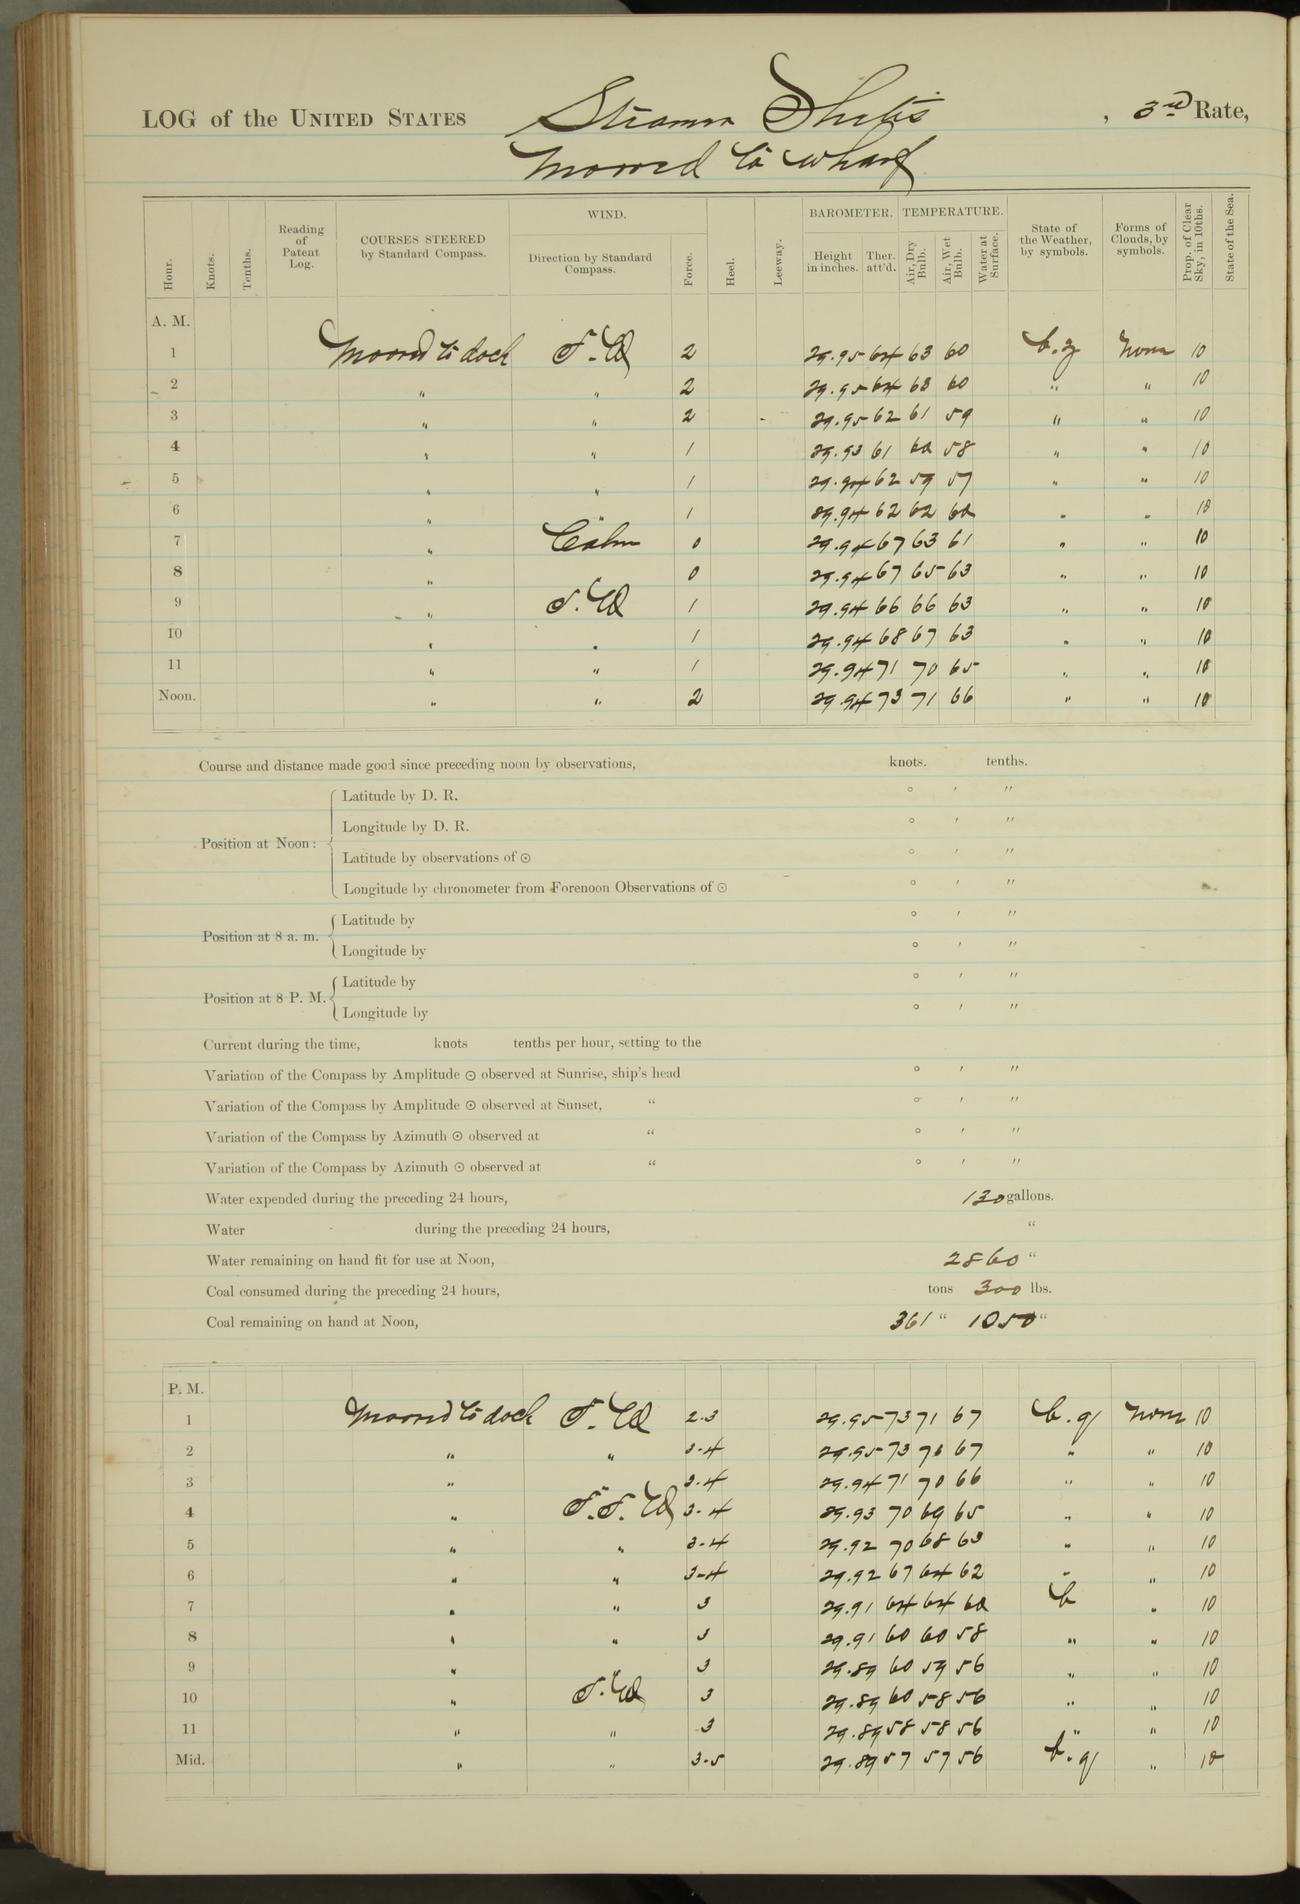 LOG of the UNITED STATES Steamer Thetis , 3rd Rate,
Moored to wharf
Hour. Knots. Tenths. Reading of Patent Log. COURSES STEERED by Standard Compass. WIND. Direction by Standard Compass. Force. Heel. Leeway. BAROMETER. Height in inches. Ther. att'd. TEMPERATURE. Air, Dry Bulb. Air, Wet Bulb. Water at Surface. State of the Weather, by symbols. Forms of Clouds, by symbols. Prop. of Clear Sky, in 10ths. State of the Sea.
A. M.
1 Moored to dock S.W 2 29.95 64 63 60 b.z None 10
2 " " 2 29.95 64 63 60 " " 10
3 " " 2 29.95 62 61 59 " " 10
4 " " 1 29.93 61 60 58 " " 10
5 " " 1 29.94 62 59 57 " " 10
6 " " 1 29.94 62 62 60 " " 10
7 " Calm 0 29.94 67 63 61 " " 10
8 " 0 29.94 67 65 63 " " 10
9 " S.W 1 29.94 66 66 63 " " 10
10 " " 1 29.94 68 67 63 " " 10
11 " " 1 29.94 71 70 65 " " 10
Noon. " " 2 29.94 73 71 66 " " 10
Course and distance made good since preceding noon by observations, knots. tenths.
Position at Noon: Latitude by D. R. ° ′ ″
Longitude by D. R. ° ′ ″
Latitude by observations of ⊙ ° ′ ″
Longitude by chronometer from Forenoon Observations of ⊙ ° ′ ″
Position at 8 a. m. Latitude by ° ′ ″
Longitude by ° ′ ″
Position at 8 P. M. Latitude by ° ′ ″
Longitude by ° ′ ″
Current during the time, knots tenths per hour, setting to the
Variation of the Compass by Amplitude ⊙ observed at Sunrise, ship's head ° ′ ″
Variation of the Compass by Amplitude ⊙ observed at Sunset, " ° ′ ″
Variation of the Compass by Azimuth ⊙ observed at " ° ′ ″
Variation of the Compass by Azimuth ⊙ observed at " ° ′ ″
Water expended during the preceding 24 hours, 130 gallons.
Water during the preceding 24 hours, "
Water remaining on hand fit for use at Noon, 2860 "
Coal consumed during the preceding 24 hours, tons 300 lbs.
Coal remaining on hand at Noon, 361 " 1050 "
P. M.
1 Moored to dock S.W 2-3 29.95 73 71 67 b.q None 10
2 " " 3-4 29.95 73 71 67 " " 10
3 " " 3-4 29.94 71 70 66 " " 10
4 " S.S.W 3-4 29.93 70 69 65 " " 10
5 " " 3-4 29.92 70 68 63 " " 10
6 " " 3-4 29.92 67 64 62 " " 10
7 " " 3 29.91 64 64 60 b " 10
8 " " 3 29.91 60 60 58 " " 10
9 " " 3 29.89 60 59 56 " " 10
10 " S.W 3 29.89 60 58 56 " " 10
11 " " 3 29.89 58 58 56 " " 10
Mid. " " 3-5 29.89 57 57 56 b.q " 10